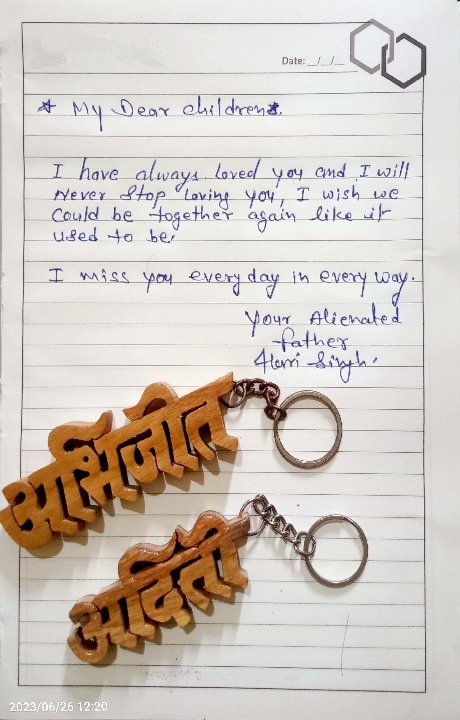 Date: _/_/_
* My Dear children*.
I have always loved you and I will
Never Stop Loving you, I wish we
Could be together again like it
used to be.
I miss you every day in every way.
Your Alienated
father
Singh.
अभिजीत
अदिती
2023/06/26 12:20